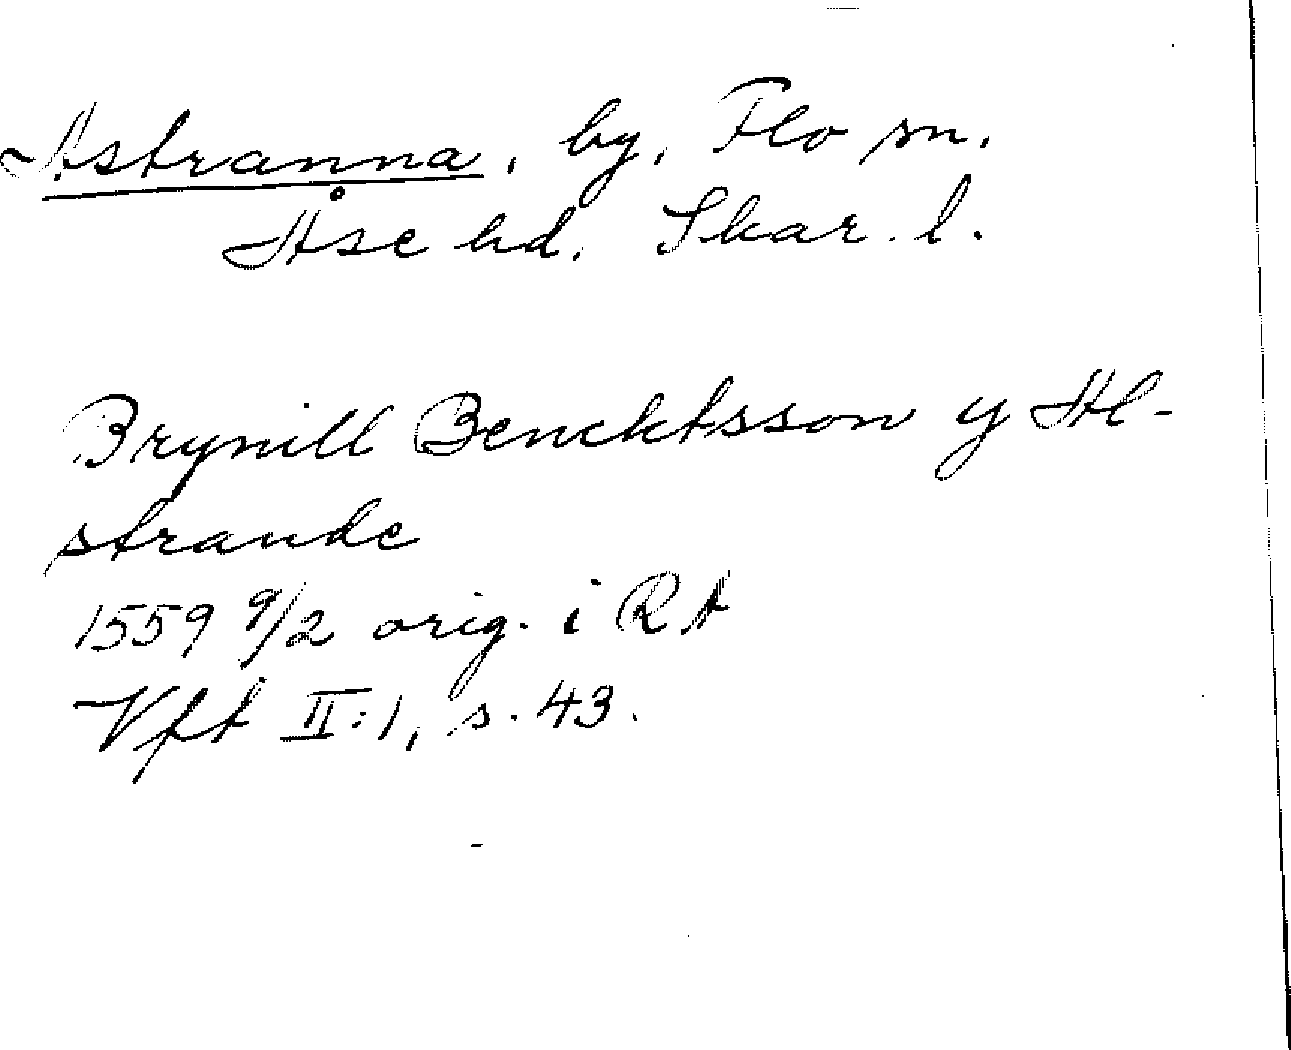 Astranna, by, Flo sn.
Åse hd. Skar. l.
Brynill Bencktsson y Al-
strande
1559 9/2 orig. i RA
Vft II:1, s. 43.